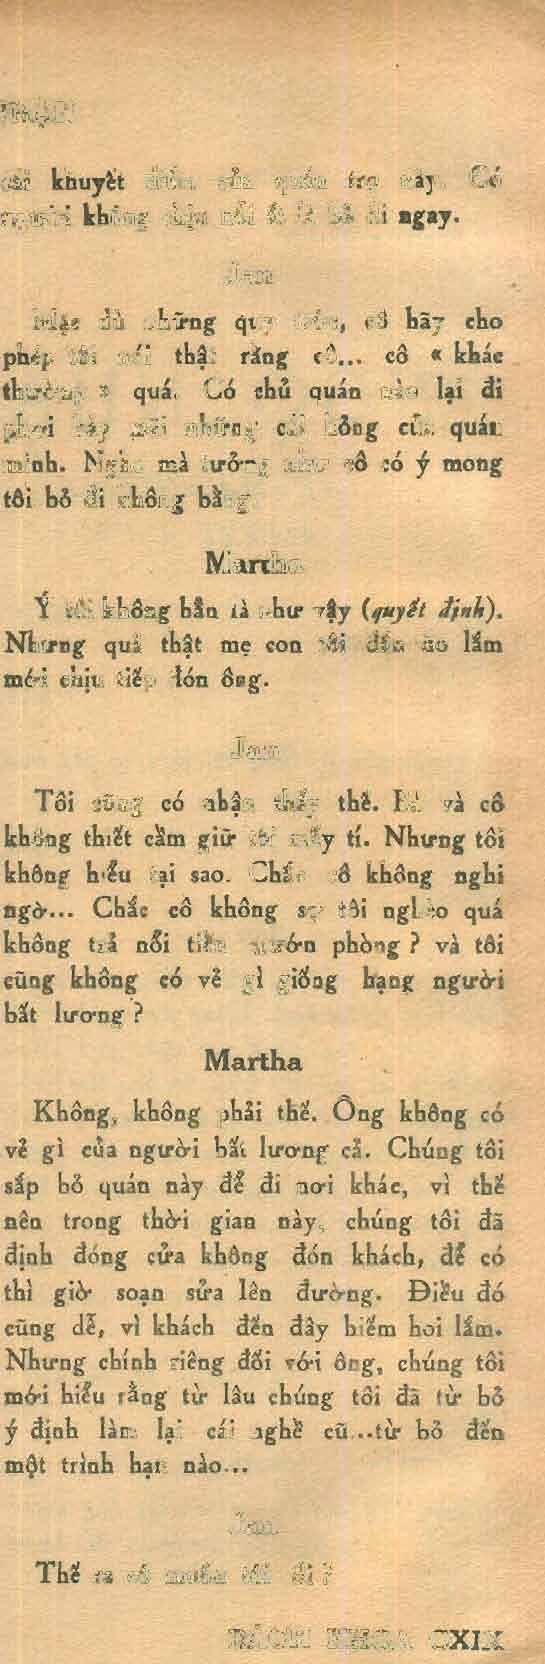 khuyết điểm của quán trọ này. Có
người không chịu nổi ắt là bỏ đi ngay.
Jan
Mặc dù những quy tắc, cô hãy cho
phép tôi nói thật rằng cô... cô « khác
thường » quá. Có chủ quán nào lại đi
phơi bày mãi những cái hỏng của quán
mình. Nghe mà tưởng như cô có ý mong
tôi bỏ đi không bằng.
Martha
Ý tôi không hẳn là như vậy (quyết định).
Nhưng quả thật mẹ con tôi đắn đo lắm
mới chịu tiếp đón ông.
Jan
Tôi cũng có nhận thấy thế. Bà và cô
không thiết cầm giữ tôi mấy tí. Nhưng tôi
không hiểu tại sao. Chắc cô không nghi
ngờ... Chắc cô không sợ tôi nghèo quá
không trả nổi tiền mướn phòng ? và tôi
cũng không có vẻ gì giống hạng người
bất lương ?
Martha
Không, không phải thế. Ông không có
vẻ gì của người bất lương cả. Chúng tôi
sắp bỏ quán này để đi nơi khác, vì thế
nên trong thời gian này, chúng tôi đã
định đóng cửa không đón khách, để có
thì giờ soạn sửa lên đường. Điều đó
cũng dễ, vì khách đến đây hiếm hoi lắm.
Nhưng chính riêng đối với ông, chúng tôi
mới hiểu rằng từ lâu chúng tôi đã từ bỏ
ý định làm lại cái nghề cũ...từ bỏ đến
một trình hạn nào...
Jan
Thế ra cô muốn tôi đi ?
BÁCH KHOA CXIX